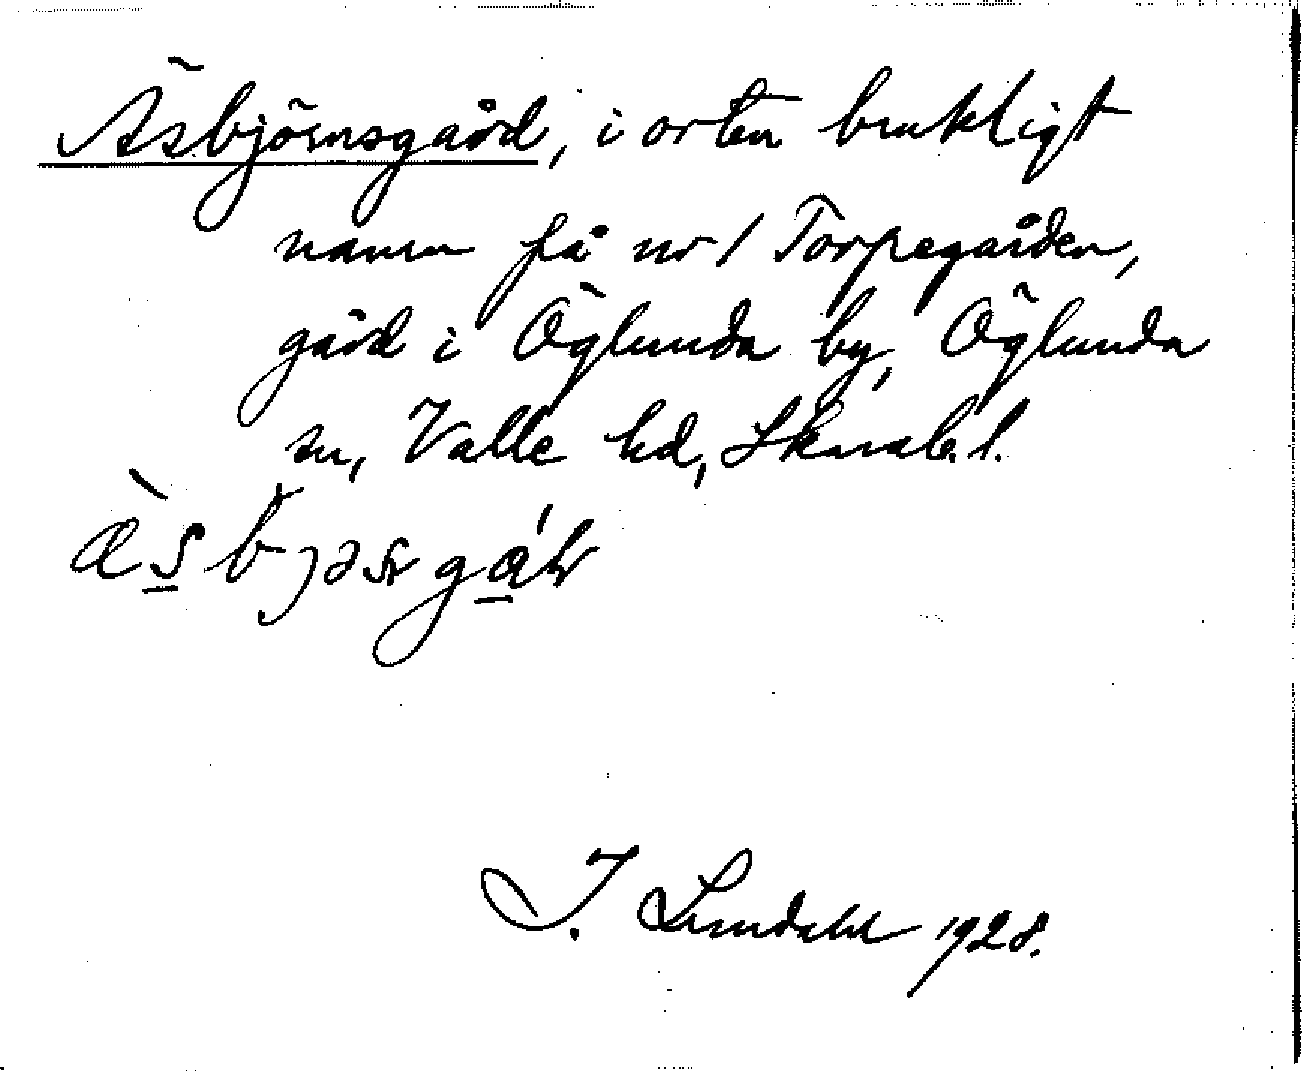 Äsbjörnsgård, i orten brukligt
namn på nr 1 Torpegården,
gård i Öglunda by, Öglunda
sn, Valle hd, Skarab. l.
I. Lundahl 1928.